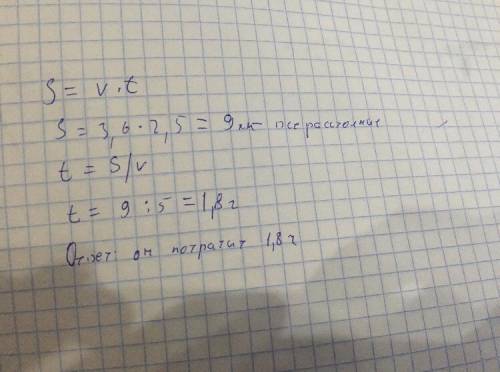 S = v·t
S = 3,6·2,5 = 9км - все расстояние
t = S/v
t = 9:5 = 1,8 ч
Ответ: он потратит 1,8 ч